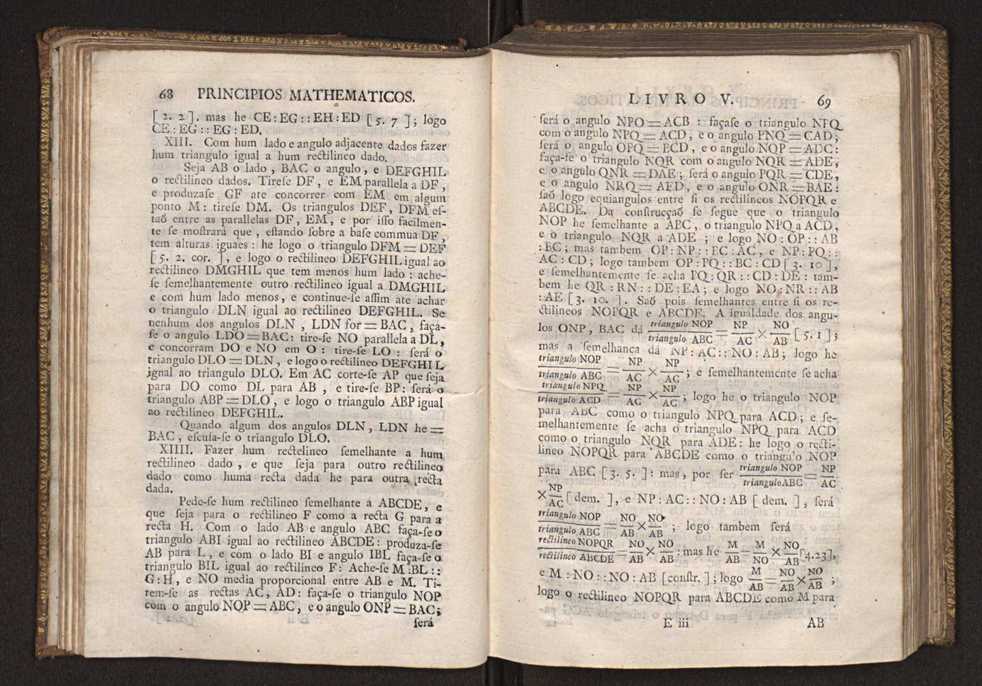 68 PRINCIPIOS MATHEMATICOS.
[ 2. 2 ]. mas he CE : EG : : EH : ED [ 5. 7 ]; logo
CE : EG : : EG : ED.
XIII. Com hum lado e angulo adjacente dados fazer
hum triangulo igual a hum rectilineo dado.
Seja AB o lado , BAC o angulo , e DEFGHIL
o rectilineo dados. Tirese DF , e EM parallela a DF ,
e produzase GF ate concorrer com EM em algum
ponto M : tirese DM. Os triangulos DEF , DFM es-
taõ entre as parallelas DF, EM , e por isso facilmen-
te se mostrará que , estando sobre a base commua DF ,
tem alturas iguaes : he logo o triangulo DFM = DEF
[ 5. 2. cor. ], e logo o rectilineo DEFGHIL igual ao
rectilineo DMGHIL que tem menos hum lado : ache-
se semelhantemente outro rectilineo igual a DMGHIL
e com hum lado menos, e continue-se assim ate achar
o triangulo DLN igual ao rectilineo DEFGHIL. Se
nenhum dos angulos DLN , LDN for = BAC , faça-
se o angulo LDO = BAC : tire-se NO parallela a DL,
e concorram DO e NO em O : tire-se LO : será o
triangulo DLO = DLN , e logo o rectilineo DEFGHIL
igual ao triangulo DLO. Em AC corte-se AP que seja
para DO como DL para AB , e tire-se BP : será o
triangulo ABP = DLO , e logo o triangulo ABP igual
ao rectilineo DEFGHIL.
Quando algum dos angulos DLN , LDN he =
BAC , escusa-se o triangulo DLO.
XIIII. Fazer hum rectelineo semelhante a hum
rectilineo dado , e que seja para outro rectilineo
dado como huma recta dada he para outra recta
dada.
Pede-se hum rectilineo semelhante a ABCDE , e
que seja para o rectilineo F como a recta G para a
recta H. Com o lado AB e angulo ABC faça-se o
triangulo ABI igual ao rectilineo ABCDE : produza-se
AB para L , e com o lado BI e angulo IBL faça-se o
triangulo BIL igual ao rectilineo F : Ache-se M : BL : :
G : H , e NO media proporcional entre AB e M. Ti-
rem-se as rectas AC, AD : faça-se o triangulo NOP
com o angulo NOP = ABC , e o angulo ONP = BAC;
será
LIVRO V. 69
será o angulo NPO = ACB : façase o triangulo NPQ
com o angulo NPQ = ACD , e o angulo PNQ = CAD;
será o angulo OPQ = BCD , e o angulo NQP = ADC :
faça-se o triangulo NQR com o angulo NQR = ADE,
e o angulo QNR = DAE ; será o angulo PQR = CDE,
e o angulo NRQ = AED , e o angulo ONR = BAE :
saõ logo equiangulos entre si os rectilineos NOPQR e
ABCDE. Da construcçaõ se segue que o triangulo
NOP he semelhante a ABC , o triangulo NPQ a ACD,
e o triangulo NQR a ADE ; e logo NO : OP : : AB
: BC ; mas tambem OP : NP : : BC : AC, e NP : PQ : :
AC : CD ; logo tambem OP : PQ : : BC : CD [ 3. 10 ],
e semelhantemente se acha PQ : QR : : CD : DE : tam-
bem he QR : RN : : DE : EA ; e logo NO : NR : : AB
: AE [ 3. 10. ]. Saõ pois semelhantes entre si os re-
ctilineos NOPQR e ABCDE. A igualdade dos angu-
los ONP , BAC dá triangulo NOP / triangulo ABC = NP / AC × NO / AB [ 5. 1 ];
mas a semelhança dá NP : AC : : NO : AB ; logo he
triangulo NOP / triangulo ABC = NP / AC × NP / AC ; e semelhantemente se acha
triangulo NPQ / triangulo ACD = NP / AC × NP / AC ; logo he o triangulo NOP
para ABC como o triangulo NPQ para ACD ; e se-
melhantemente se acha o triangulo NPQ para ACD
como o triangulo NQR para ADE : he logo o recti-
lineo NOPQR para ABCDE como o triangulo NOP
para ABC [ 3. 5. ] : mas , por ser triangulo NOP / triangulo ABC = NP / AC
× NP / AC [ dem. ], e NP : AC : : NO : AB [ dem. ], será
triangulo NOP / triangulo ABC = NO / AB × NO / AB ; logo tambem será
rectilineo NOPQR / rectilineo ABCDE = NO / AB × NO / AB : mas he M / AB = M / NO × NO / AB [ 4.23 ],
e M : NO : : NO : AB [ constr. ] ; logo M / AB = NO / AB × NO / AB ;
logo o rectilineo NOPQR para ABCDE como M para
E iii AB